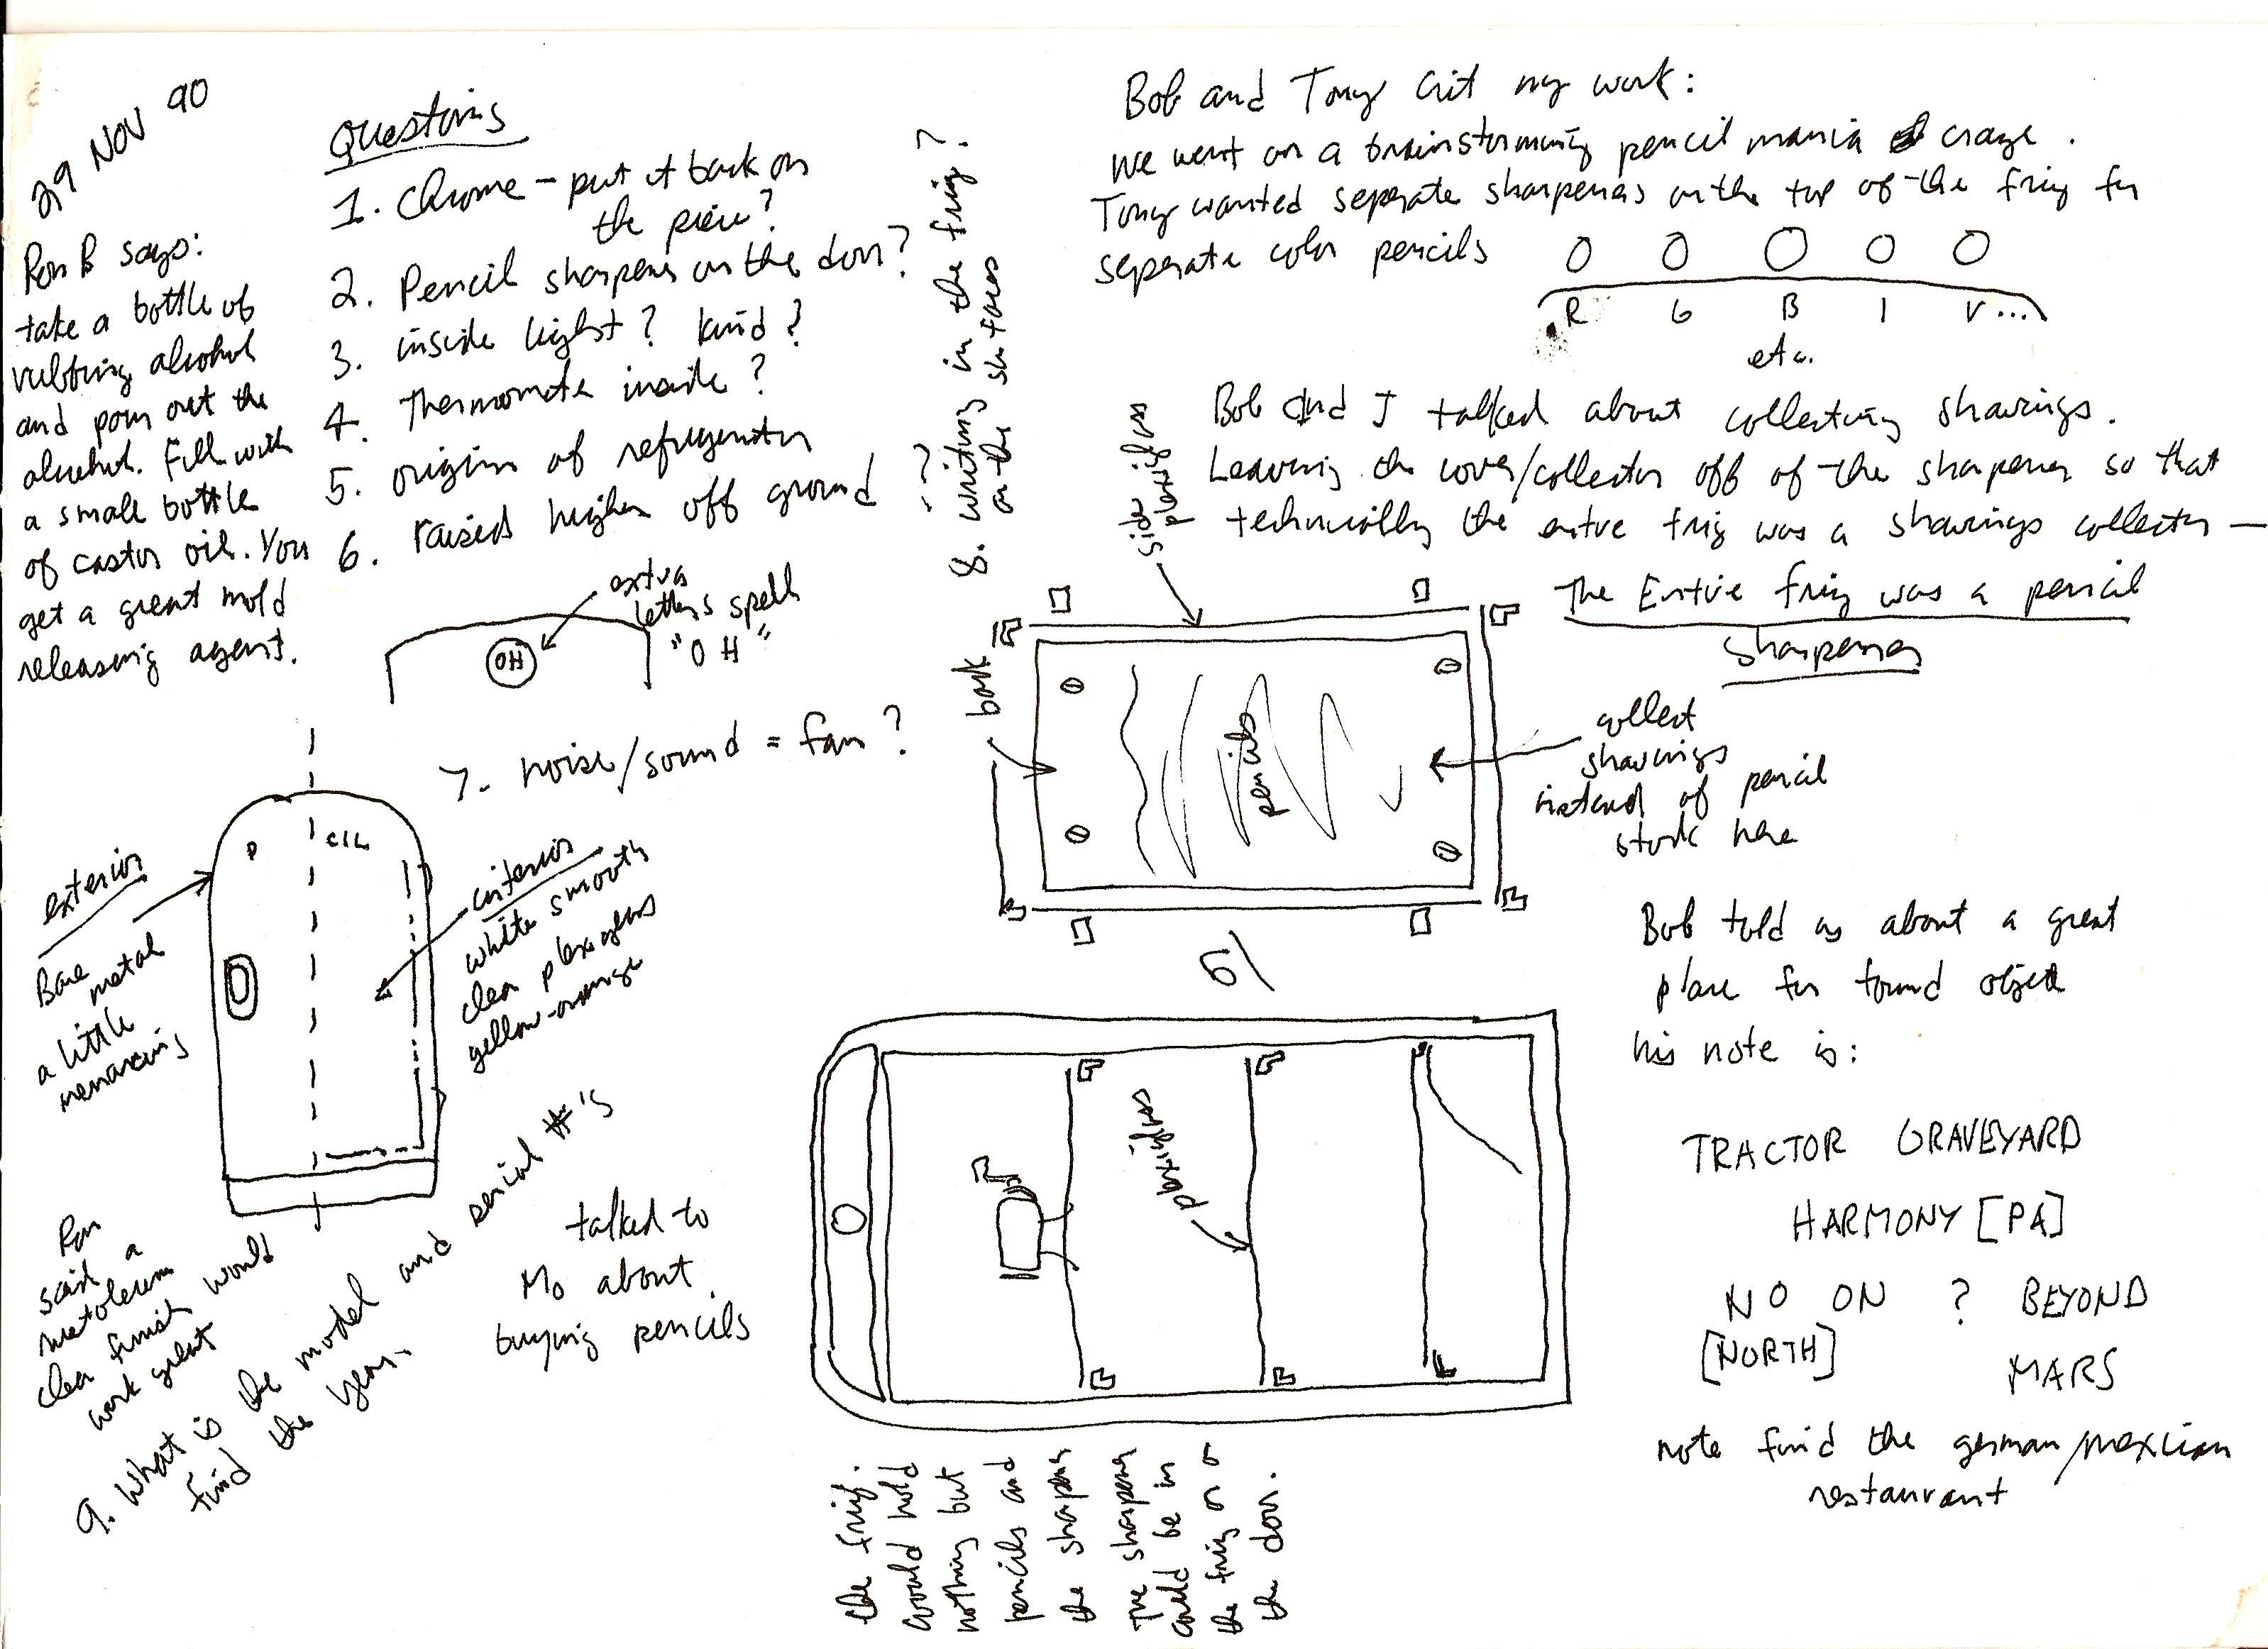 29 NOV 90
Ron B says:
take a bottle of
rubbing alcohol
and pour out the
alcohol. Fill with
a small bottle
of castor oil. You
get a great mold
releasing agent.
Questions
1. Chrome - put it back on
the piece?
2. Pencil sharpener on the door?
3. inside light? kind?
4. Thermometer inside?
5. origins of refrigerator
6. raised higher off ground
extra
letters spell
"OH"
OH
7. noise/sound = fan?
8. writing in the frig?
on the surfaces
exterior
Bare
metal
a little
menacing
P
CIL
interior
white smooth
clear plexiglass
yellow-orange
Ron
said a
clear finish would
work great
9. What is the model and serial #'s
find the year.
talked to
Mo about
buying pencils
Bob and Tony Crit my work:
We went on a brainstorming pencil mania craze.
Tony wanted seperate sharpeners on the top of the frig for
seperate color pencils
R G B I V...
etc.
Bob and I talked about collecting shavings.
Leaving the cover/collector off of the sharpener so that
technically the entire frig was a shavings collector —
The Entire frig was a pencil
sharpener
side
plexiglass
back
pencils
collect
shavings
instead of pencil
stuck here
plexiglass
the frig.
could hold
nothing but
pencils and
the sharpener
the sharpener
could be in
the frig or on
the door.
Bob told us about a great
place for found object
his note is:
TRACTOR GRAVEYARD
HARMONY [PA]
NO ON ? BEYOND
[NORTH]
MARS
note find the german/mexican
restaurant